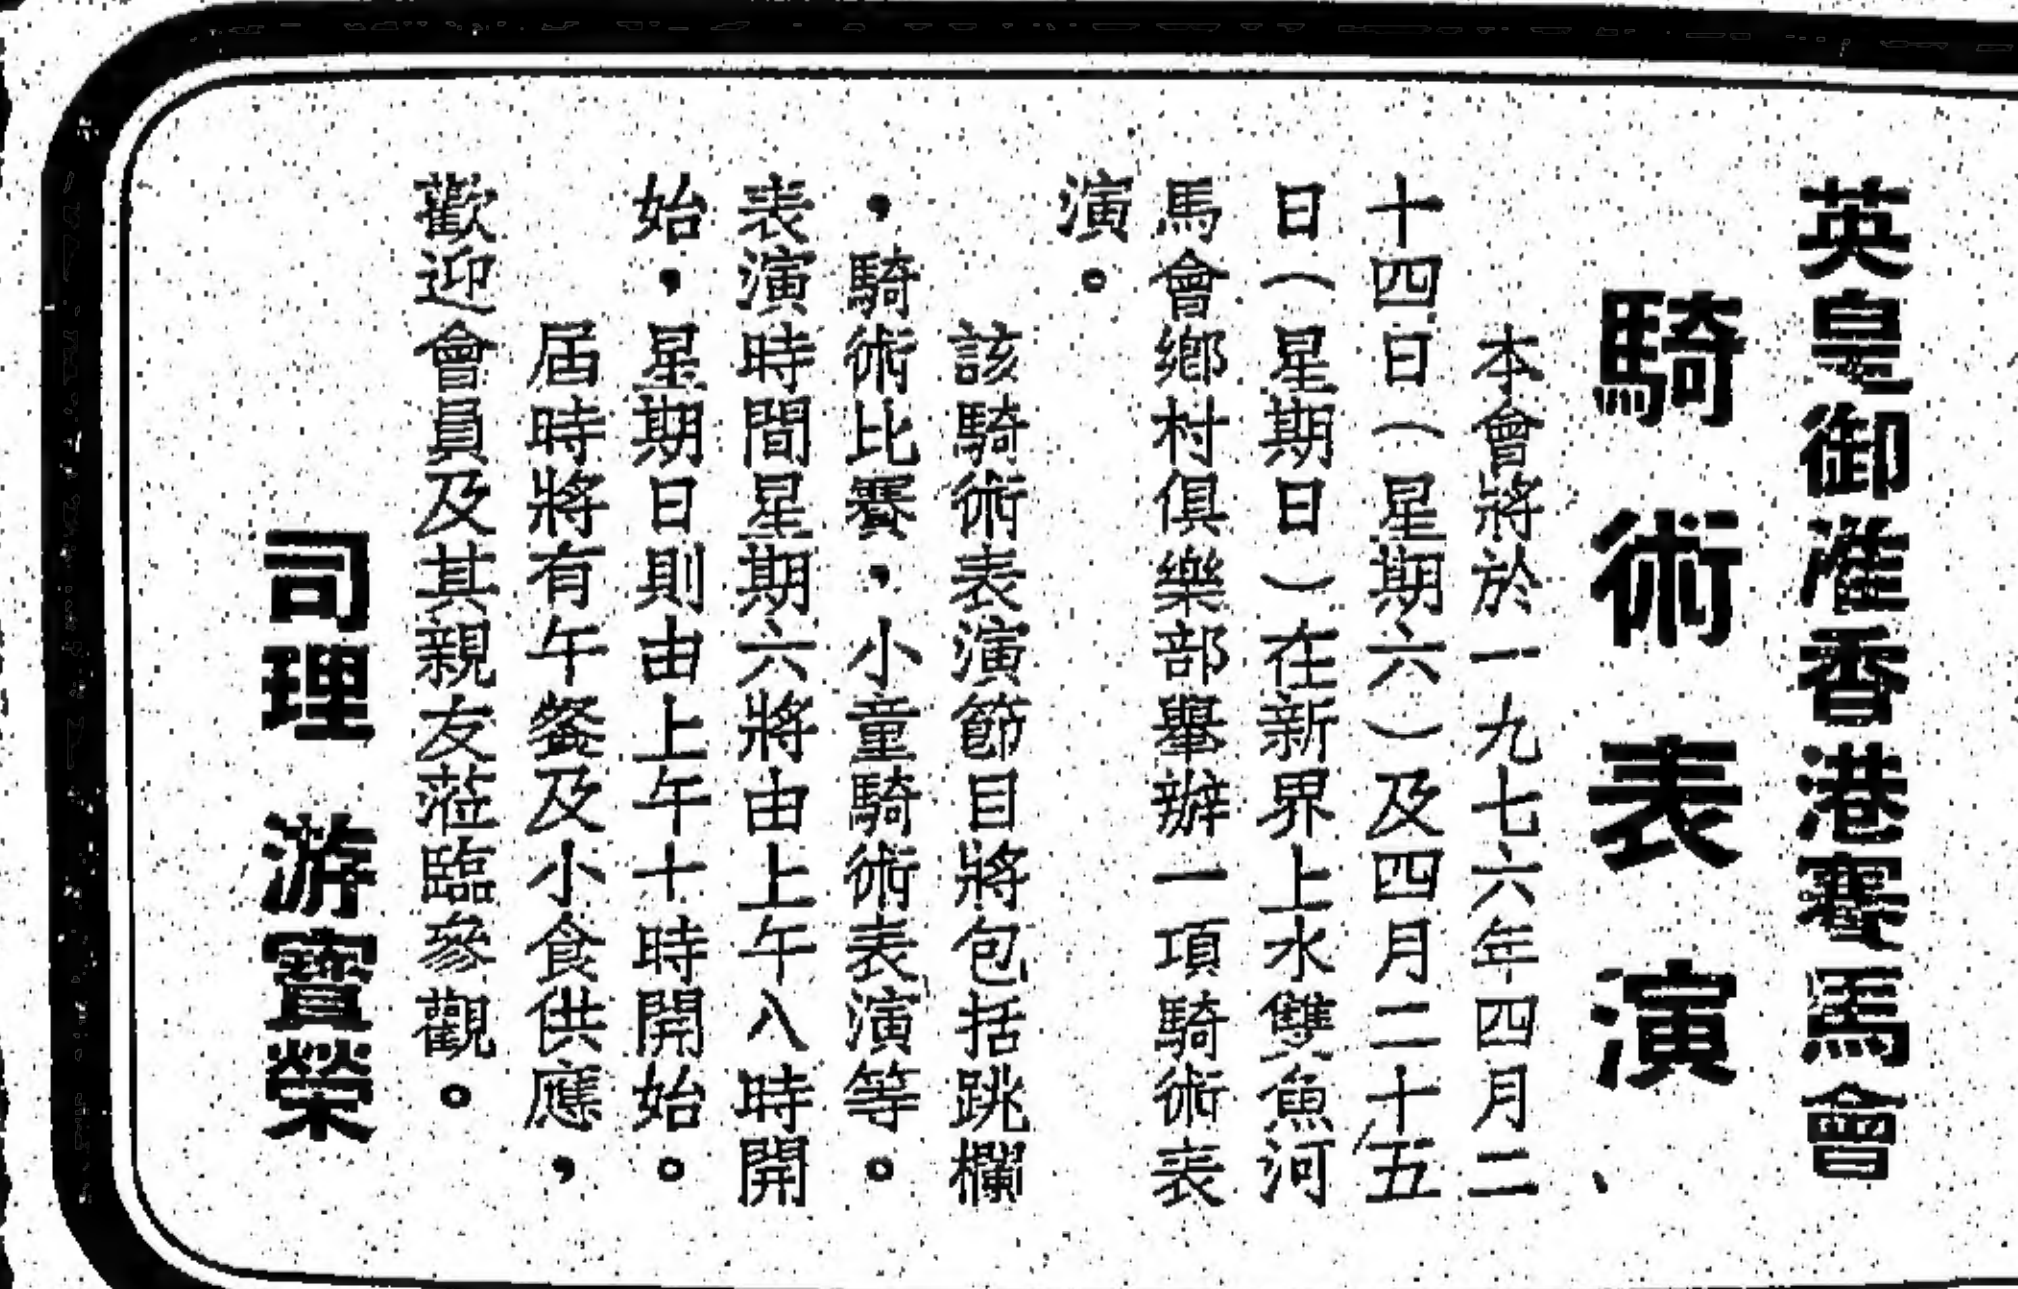 英皇御准香港賽馬會
騎術表演
本會將於一九七六年四月二
十四日(星期六)及四月二十五
日(星期日)在新界上水雙魚河
馬會鄉村俱樂部舉辦一項騎術表
演。
該騎術表演節目將包括跳欄
,騎術比賽,小童騎術表演等。
表演時間星期六將由上午八時開
始,星期日則由上午十時開始。
屆時將有午餐及小食供應,
歡迎會員及其親友蒞臨參觀。
司理 游寶榮